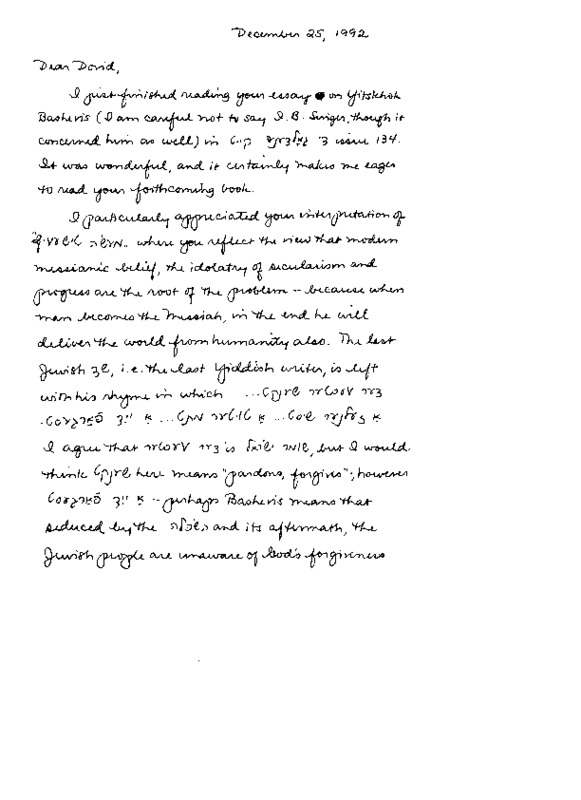 December 25, 1992
Dear David,
I just finished reading your essay on Yitskhok
Bashevis (I am careful not to say I. B. Singer, though it
concerned him as well) in די גאלדענע קייט issue 134.
It was wonderful, and it certainly makes me eager
to read your forthcoming book.
I particularly appreciated your interpretation of
where you reflect the view that modern
messianic belief, the idolatry of secularism and
progress are the root of the problem -- because when
man becomes the Messiah, in the end he will
deliver the world from humanity also. The last
Jewish שד, i.e. the last Yiddish writer, is left
with his rhyme in which ... דער
א ... א ... א ייד פארגעסט.
I agree that דער is, but I would
think here means "pardons, forgives"; however
א ייד פארגעסט -- perhaps Bashevis means that
seduced by the השכלה and its aftermath, the
Jewish people are unaware of God's forgiveness